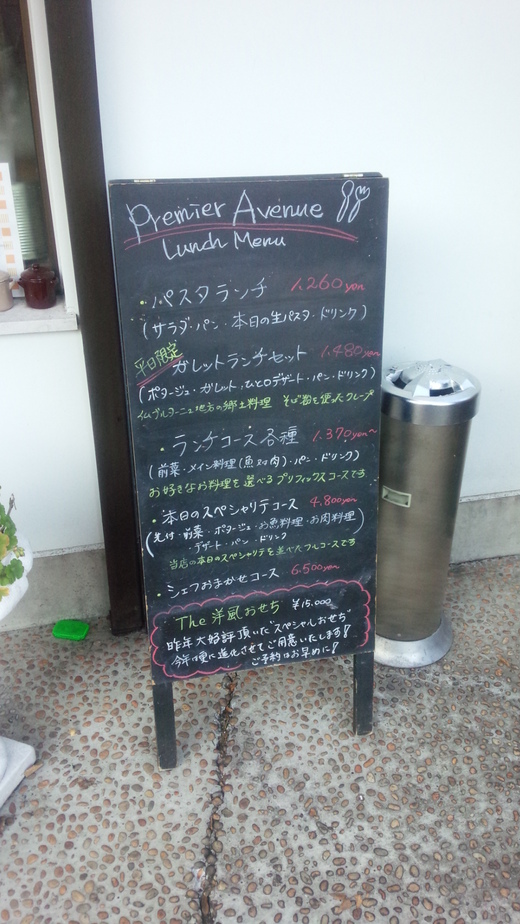 Premier Avenue
Lunch Menu
・パスタランチ 1,260yen
(サラダ・パン・本日の生パスタ・ドリンク)
平日限定 ガレットランチセット 1,480yen
(ポタージュ・ガレット・ひと口デザート・パン・ドリンク)
仏ブルターニュ地方の郷土料理 そば粉を使ったクレープ
・ランチコース各種 1,370yen〜
(前菜・メイン料理(魚or肉)・パン・ドリンク)
お好きなお料理を選べるプリフィックスコースです
・本日のスペシャリテコース 4,800yen
(先付・前菜・ポタージュ・お魚料理・お肉料理
・デザート・パン・ドリンク)
当店の本日のスペシャリテを並べたフルコースです
・シェフおまかせコース 6,500yen
The 洋風おせち ¥15,000
昨年大好評頂いた"スペシャルおせち"
今年は更に進化させてご用意いたします!
ご予約はお早めに!